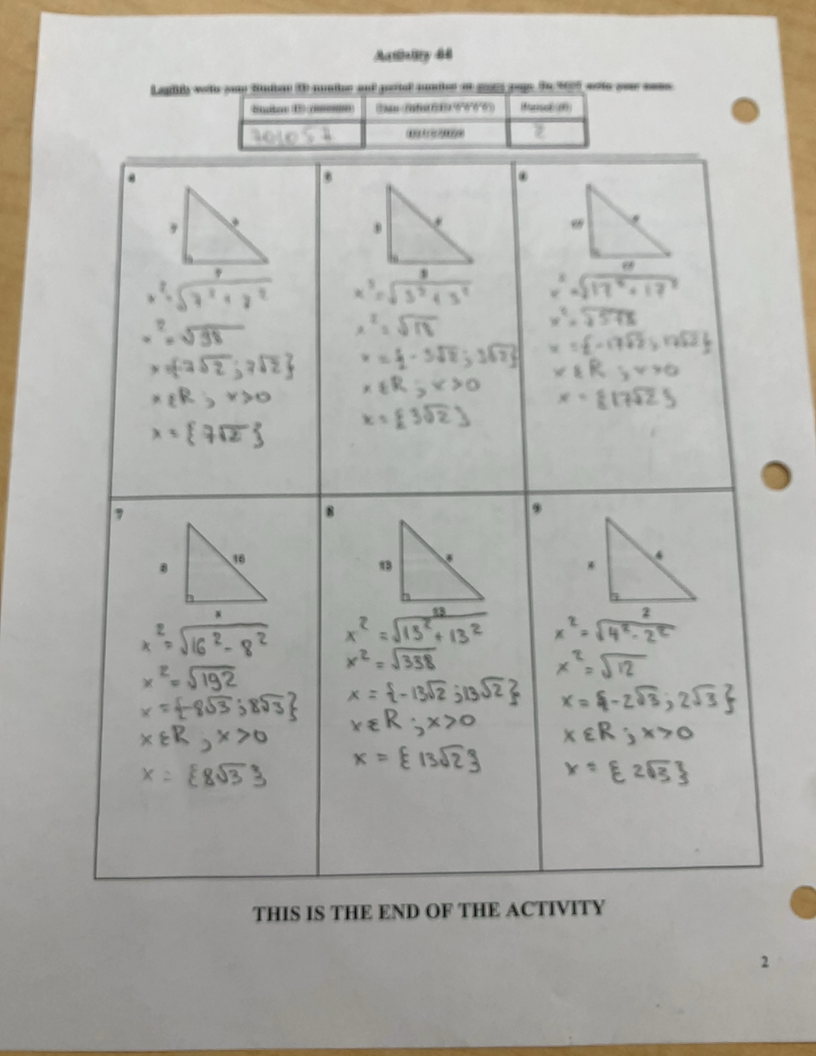 Activity 44
Legibly write your Student ID number and period number on every page. Do NOT write your name.
Student ID
Period (#)
701057
2
4
7
x
7
x² = √7² + 7²
x² = √98
x {-7√2 ; 7√2}
x ε R ; x > 0
x = {7√2}
5
3
x
3
x² = √3² + 3²
x² = √18
x = {-3√2 ; 3√2}
x ε R ; x > 0
x = {3√2}
6
17
x
17
x² = √17² + 17²
x² = √578
x = {-17√2 ; 17√2}
x ε R ; x > 0
x = {17√2}
7
8
16
x
x² = √16² - 8²
x² = √192
x = {-8√3 ; 8√3}
x ε R ; x > 0
x = {8√3}
8
13
x
13
x² = √13² + 13²
x² = √338
x = {-13√2 ; 13√2}
x ε R ; x > 0
x = {13√2}
9
x
4
2
x² = √4² - 2²
x² = √12
x = {-2√3 ; 2√3}
x ε R ; x > 0
x = {2√3}
THIS IS THE END OF THE ACTIVITY
2